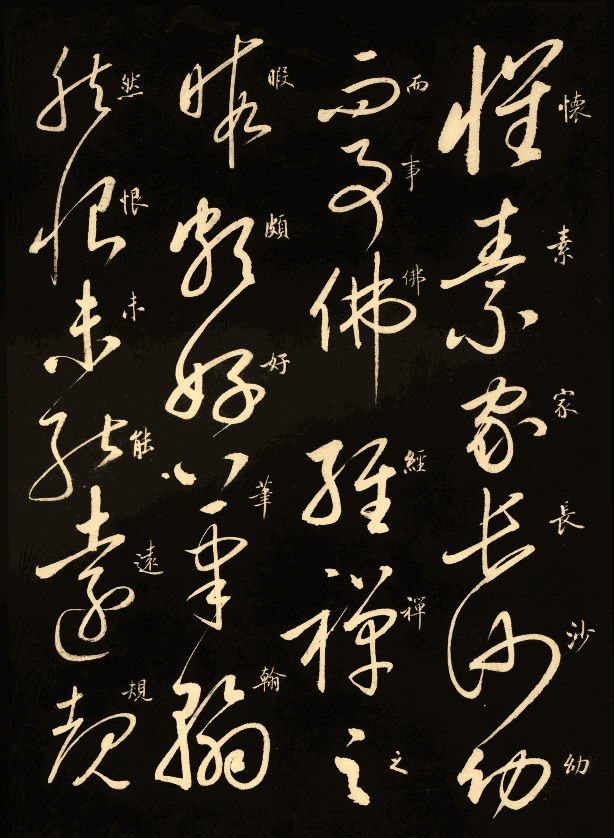 懷素家長沙幼
而事佛經禪之
暇頗好筆翰
然恨未能遠規